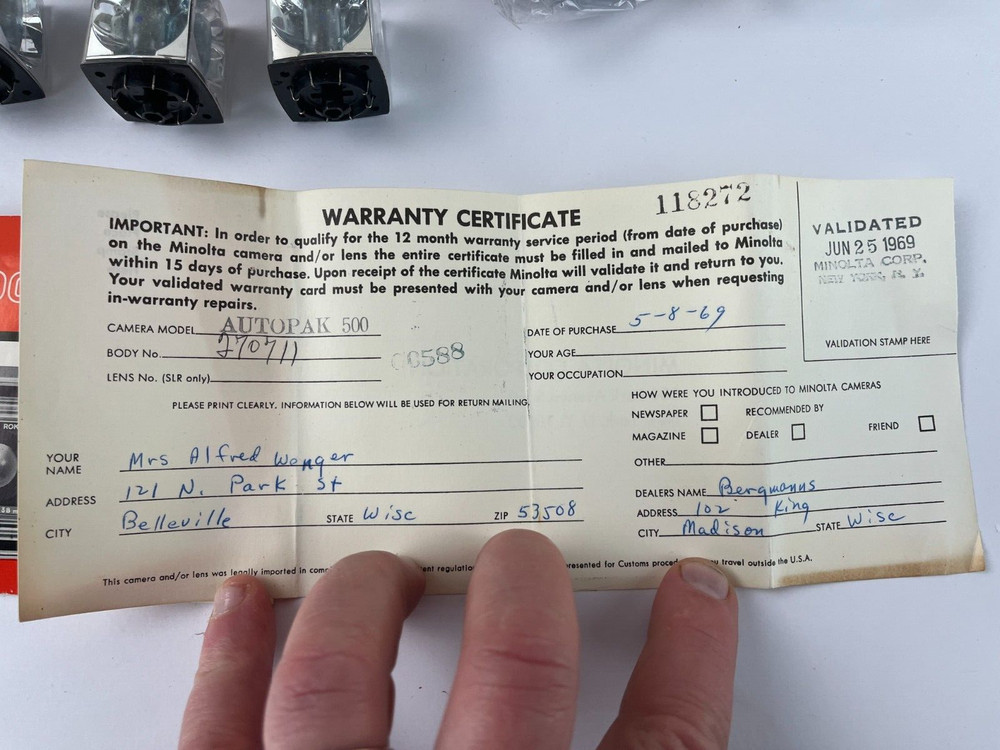 WARRANTY CERTIFICATE
118272
IMPORTANT: In order to qualify for the 12 month warranty service period (from date of purchase)
on the Minolta camera and/or lens the entire certificate must be filled in and mailed to Minolta
within 15 days of purchase. Upon receipt of the certificate Minolta will validate it and return to you.
Your validated warranty card must be presented with your camera and/or lens when requesting
in-warranty repairs.
VALIDATED
JUN 25 1969
MINOLTA CORP.
NEW YORK, N. Y.
VALIDATION STAMP HERE
CAMERA MODEL AUTOPAK 500
BODY No. 270711
0588
LENS No. (SLR only)
DATE OF PURCHASE 5-8-69
YOUR AGE
YOUR OCCUPATION
PLEASE PRINT CLEARLY. INFORMATION BELOW WILL BE USED FOR RETURN MAILING.
HOW WERE YOU INTRODUCED TO MINOLTA CAMERAS
NEWSPAPER RECOMMENDED BY
MAGAZINE DEALER FRIEND
OTHER
YOUR NAME Mrs Alfred Wenger
ADDRESS 121 N. Park St
CITY Belleville STATE Wisc ZIP 53508
DEALERS NAME Bergmanns
ADDRESS 102 King
CITY Madison STATE Wisc
This camera and/or lens was legally imported in travel outside the U.S.A.